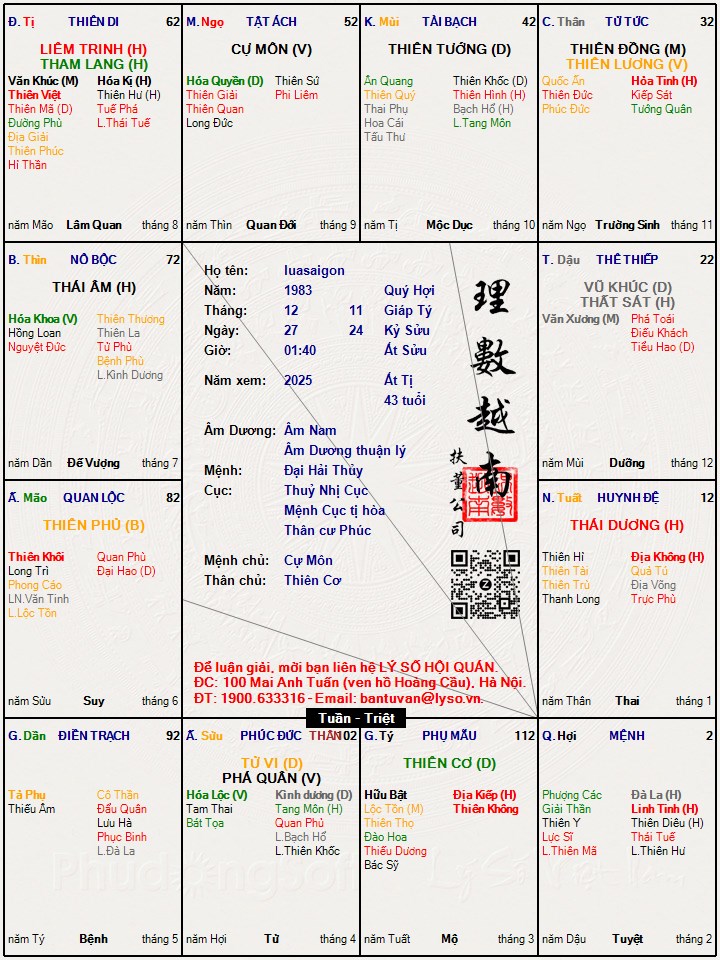 Đ. Tị THIÊN DI 62
LIÊM TRINH (H)
THAM LANG (H)
Văn Khúc (M) Hóa Kị (H)
Thiên Việt Thiên Hư (H)
Thiên Mã (D) Tuế Phá
Đường Phù L.Thái Tuế
Địa Giải
Thiên Phúc
Hỉ Thần
năm Mão Lâm Quan tháng 8
M. Ngọ TẬT ÁCH 52
CỰ MÔN (V)
Hóa Quyền (D) Thiên Sứ
Thiên Giải Phi Liêm
Thiên Quan
Long Đức
năm Thìn Quan Đới tháng 9
K. Mùi TÀI BẠCH 42
THIÊN TƯỚNG (D)
Ân Quang Thiên Khốc (D)
Thiên Quý Thiên Hình (H)
Thai Phụ Bạch Hổ (H)
Hoa Cái L.Tang Môn
Tấu Thư
năm Tị Mộc Dục tháng 10
C. Thân TỬ TỨC 32
THIÊN ĐỒNG (M)
THIÊN LƯƠNG (V)
Quốc Ấn Hỏa Tinh (H)
Thiên Đức Kiếp Sát
Phúc Đức Tướng Quân
năm Ngọ Trường Sinh tháng 11
B. Thìn NÔ BỘC 72
THÁI ÂM (H)
Hóa Khoa (V) Thiên Thương
Hồng Loan Thiên La
Nguyệt Đức Tử Phù
Bệnh Phù
L.Kình Dương
năm Dần Đế Vượng tháng 7
Họ tên: luasaigon
Năm: 1983 Quý Hợi
Tháng: 12 11 Giáp Tý
Ngày: 27 24 Kỷ Sửu
Giờ: 01:40 Ất Sửu
Năm xem: 2025 Ất Tị
43 tuổi
Âm Dương: Âm Nam
Âm Dương thuận lý
Mệnh: Đại Hải Thủy
Cục: Thuỷ Nhị Cục
Mệnh Cục tị hòa
Thân cư Phúc
Mệnh chủ: Cự Môn
Thân chủ: Thiên Cơ
理數越南
扶董公司
T. Dậu THÊ THIẾP 22
VŨ KHÚC (D)
THẤT SÁT (H)
Văn Xương (M) Phá Toái
Điếu Khách
Tiểu Hao (D)
năm Mùi Dưỡng tháng 12
Ấ. Mão QUAN LỘC 82
THIÊN PHỦ (B)
Thiên Khôi Quan Phù
Long Trì Đại Hao (D)
Phong Cáo
LN.Văn Tinh
L.Lộc Tồn
năm Sửu Suy tháng 6
N. Tuất HUYNH ĐỆ 12
THÁI DƯƠNG (H)
Thiên Hỉ Địa Không (H)
Thiên Tài Quả Tú
Thiên Trù Địa Võng
Thanh Long Trực Phù
năm Thân Thai tháng 1
Để luận giải, mời bạn liên hệ LÝ SỐ HỘI QUÁN.
ĐC: 100 Mai Anh Tuấn (ven hồ Hoàng Cầu), Hà Nội.
ĐT: 1900.633316 - Email: bantuvan@lyso.vn.
Tuần - Triệt
G. Dần ĐIỀN TRẠCH 92
Tả Phụ Cô Thần
Thiếu Âm Đẩu Quân
Lưu Hà
Phục Binh
L.Đà La
năm Tý Bệnh tháng 5
Ấ. Sửu PHÚC ĐỨC THÂN 102
TỬ VI (D)
PHÁ QUÂN (V)
Hóa Lộc (V) Kình dương (D)
Tam Thai Tang Môn (H)
Bát Tọa Quan Phủ
L.Bạch Hổ
L.Thiên Khốc
năm Hợi Tử tháng 4
G. Tý PHỤ MẪU 112
THIÊN CƠ (D)
Hữu Bật Địa Kiếp (H)
Lộc Tồn (M) Thiên Không
Thiên Thọ
Đào Hoa
Thiếu Dương
Bác Sỹ
năm Tuất Mộ tháng 3
Q. Hợi MỆNH 2
Phượng Các Đà La (H)
Giải Thần Linh Tinh (H)
Thiên Y Thiên Diêu (H)
Lực Sĩ Thái Tuế
L.Thiên Mã L.Thiên Hư
năm Dậu Tuyệt tháng 2